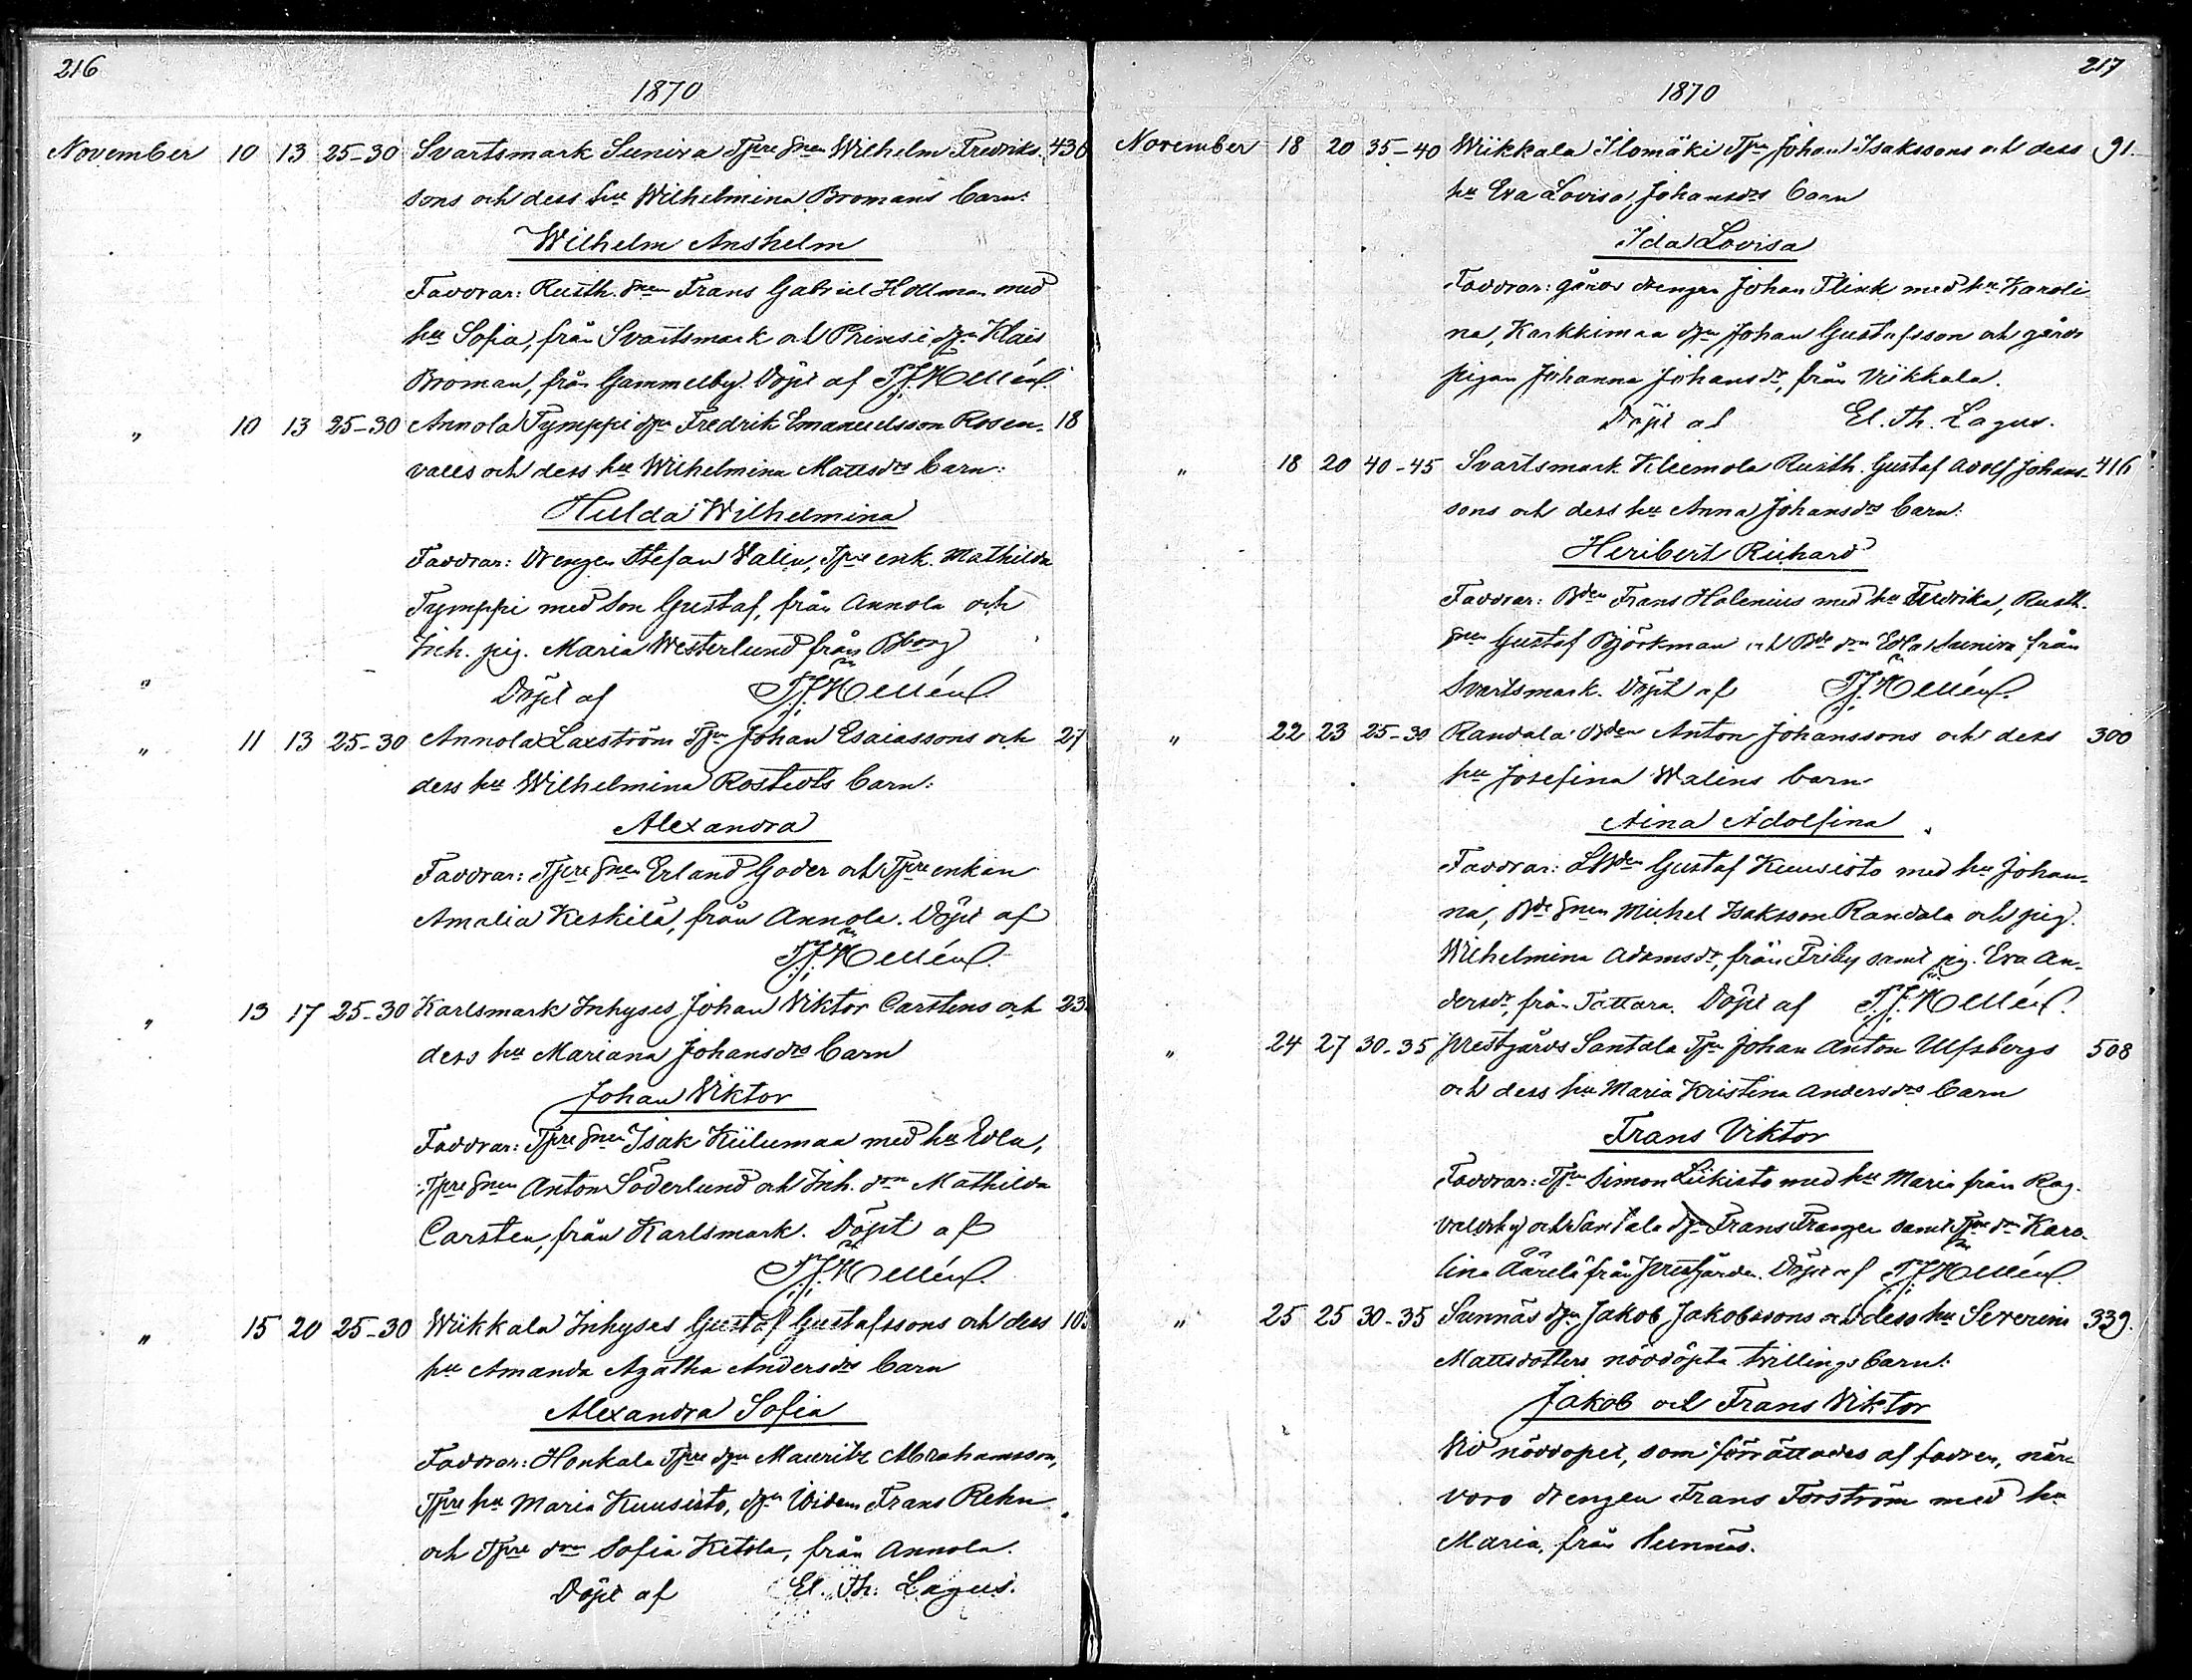 216
1870
November 10 13 25-30 Svartsmark Sunira Tjre Snen Wilhelm Fredriks- 430
sons och dess hu Wilhelmina Bromans barn:
Wilhelm Anshelm
Faddrar: Rusth. Snen Frans Gabriel Hollman med
hu Sofia, från Svartsmark och Prinsi djn Klas
Broman, från Gammelby. Döpt af T.J. Hellén.
" 10 13 25-30 Annola Tymppi djn Fredrik Emanuelsson Rosen- 18
valls och dess hu Wilhelmina Mattsdrs barn:
Hulda Wilhelmina
Faddrar: Drengen Stefan Walin, Tjre enk. Mathilda
Tymppi med Son Gustaf, från Annola och
Inh. pig. Maria Westerlund från Bborg
" Döpt af T.J. Hellén.
" 11 13 25-30 Annola Laxström Tjn Johan Esaiassons och 27
dess hu Wilhelmina Rostedts barn:
Alexandra
Faddrar: Tjre Snen Erland Goder och Tjre enkan
Amalia Keskilä, från Annola. Döpt af
T.J. Hellén.
" 13 17 25-30 Karlsmark Inhyses Johan Viktor Carstens och 23
dess hu Mariana Johansdrs barn
Johan Viktor
Faddrar: Tjre Sn Isak Kiilumaa med hu Edla,
Tjre Snen Anton Söderlund och Inh. drn Mathilda
Carsten, från Karlsmark. Döpt af
T.J. Hellén.
" 15 20 25-30 Wiikkala Inhyses Gustaf Gustafssons och dess 10
hu Amanda Agatha Andersdrs barn
Alexandra Sofia
Faddrar: Honkala Tjre djn Mauritz Abrahamsson,
Tjre hu Maria Kuusisto, djn Widem Frans Rehn
och Tjre drn Sofia Ketola, från Annola.
Döpt af El. Th. Lagus.
217
1870
November 18 20 35-40 Wiikkala Ilomäki Tjn Johan Isakssons och dess 91.
hu Eva Lovisa Johansdrs barn
Ida Lovisa
Faddrar: gårds drengen Johan Flink med hu Karoli
na, Karkkimaa djn Johan Gustafsson och gårds
pigan Johanna Johansdr, från Viikkala.
Döpt af El. Th. Lagus.
" 18 20 40-45 Svartsmark Kleemola Rusth. Gustaf Adolf Johans- 416
sons och dess hu Anna Johansdrs barn:
Heribert Richard
Faddrar: Bden Frans Holenius med hu Fredrika, Rusth.
Snen Gustaf Björkman och Bde drn Edla Sunira från
Svartsmark. Döpt af T.J. Hellén.
" 22 23 25-30 Randala Bden Anton Johanssons och dess 300
hu Josefina Walins barn
Aina Adolfina
Faddrar: LBden Gustaf Kuusisto med hu Johan-
na, Bde Snen Michel Isaksson Randala och pig.
Wilhelmina Adamsdr, från Friby samt pig. Eva An-
dersdr, från Tattara. Döpt af T.J. Hellén.
" 24 27 30-35 Prestgårds Santala Tjn Johan Anton Ulfsbergs 508
och dess hu Maria Kristina Andersdrs barn
Frans Viktor
Faddrar: Tjn Simon Liikisto med hu Maria från Rag-
valdsby och Santala djn Frans Franzen samt Tjre drn Karo-
lina Äärelä från Prestgården. Döpt af T.J. Hellén.
" 25 25 30-35 Sunnäs djn Jakob Jakobssons och dess hu Severina 339.
Mattsdotters nöddöpta tvillings barn:
Jakob och Frans Viktor
Vid nöddopet, som förrättades af fadren, när-
voro drengen Frans Forström med hu
Maria, från Sunnäs.